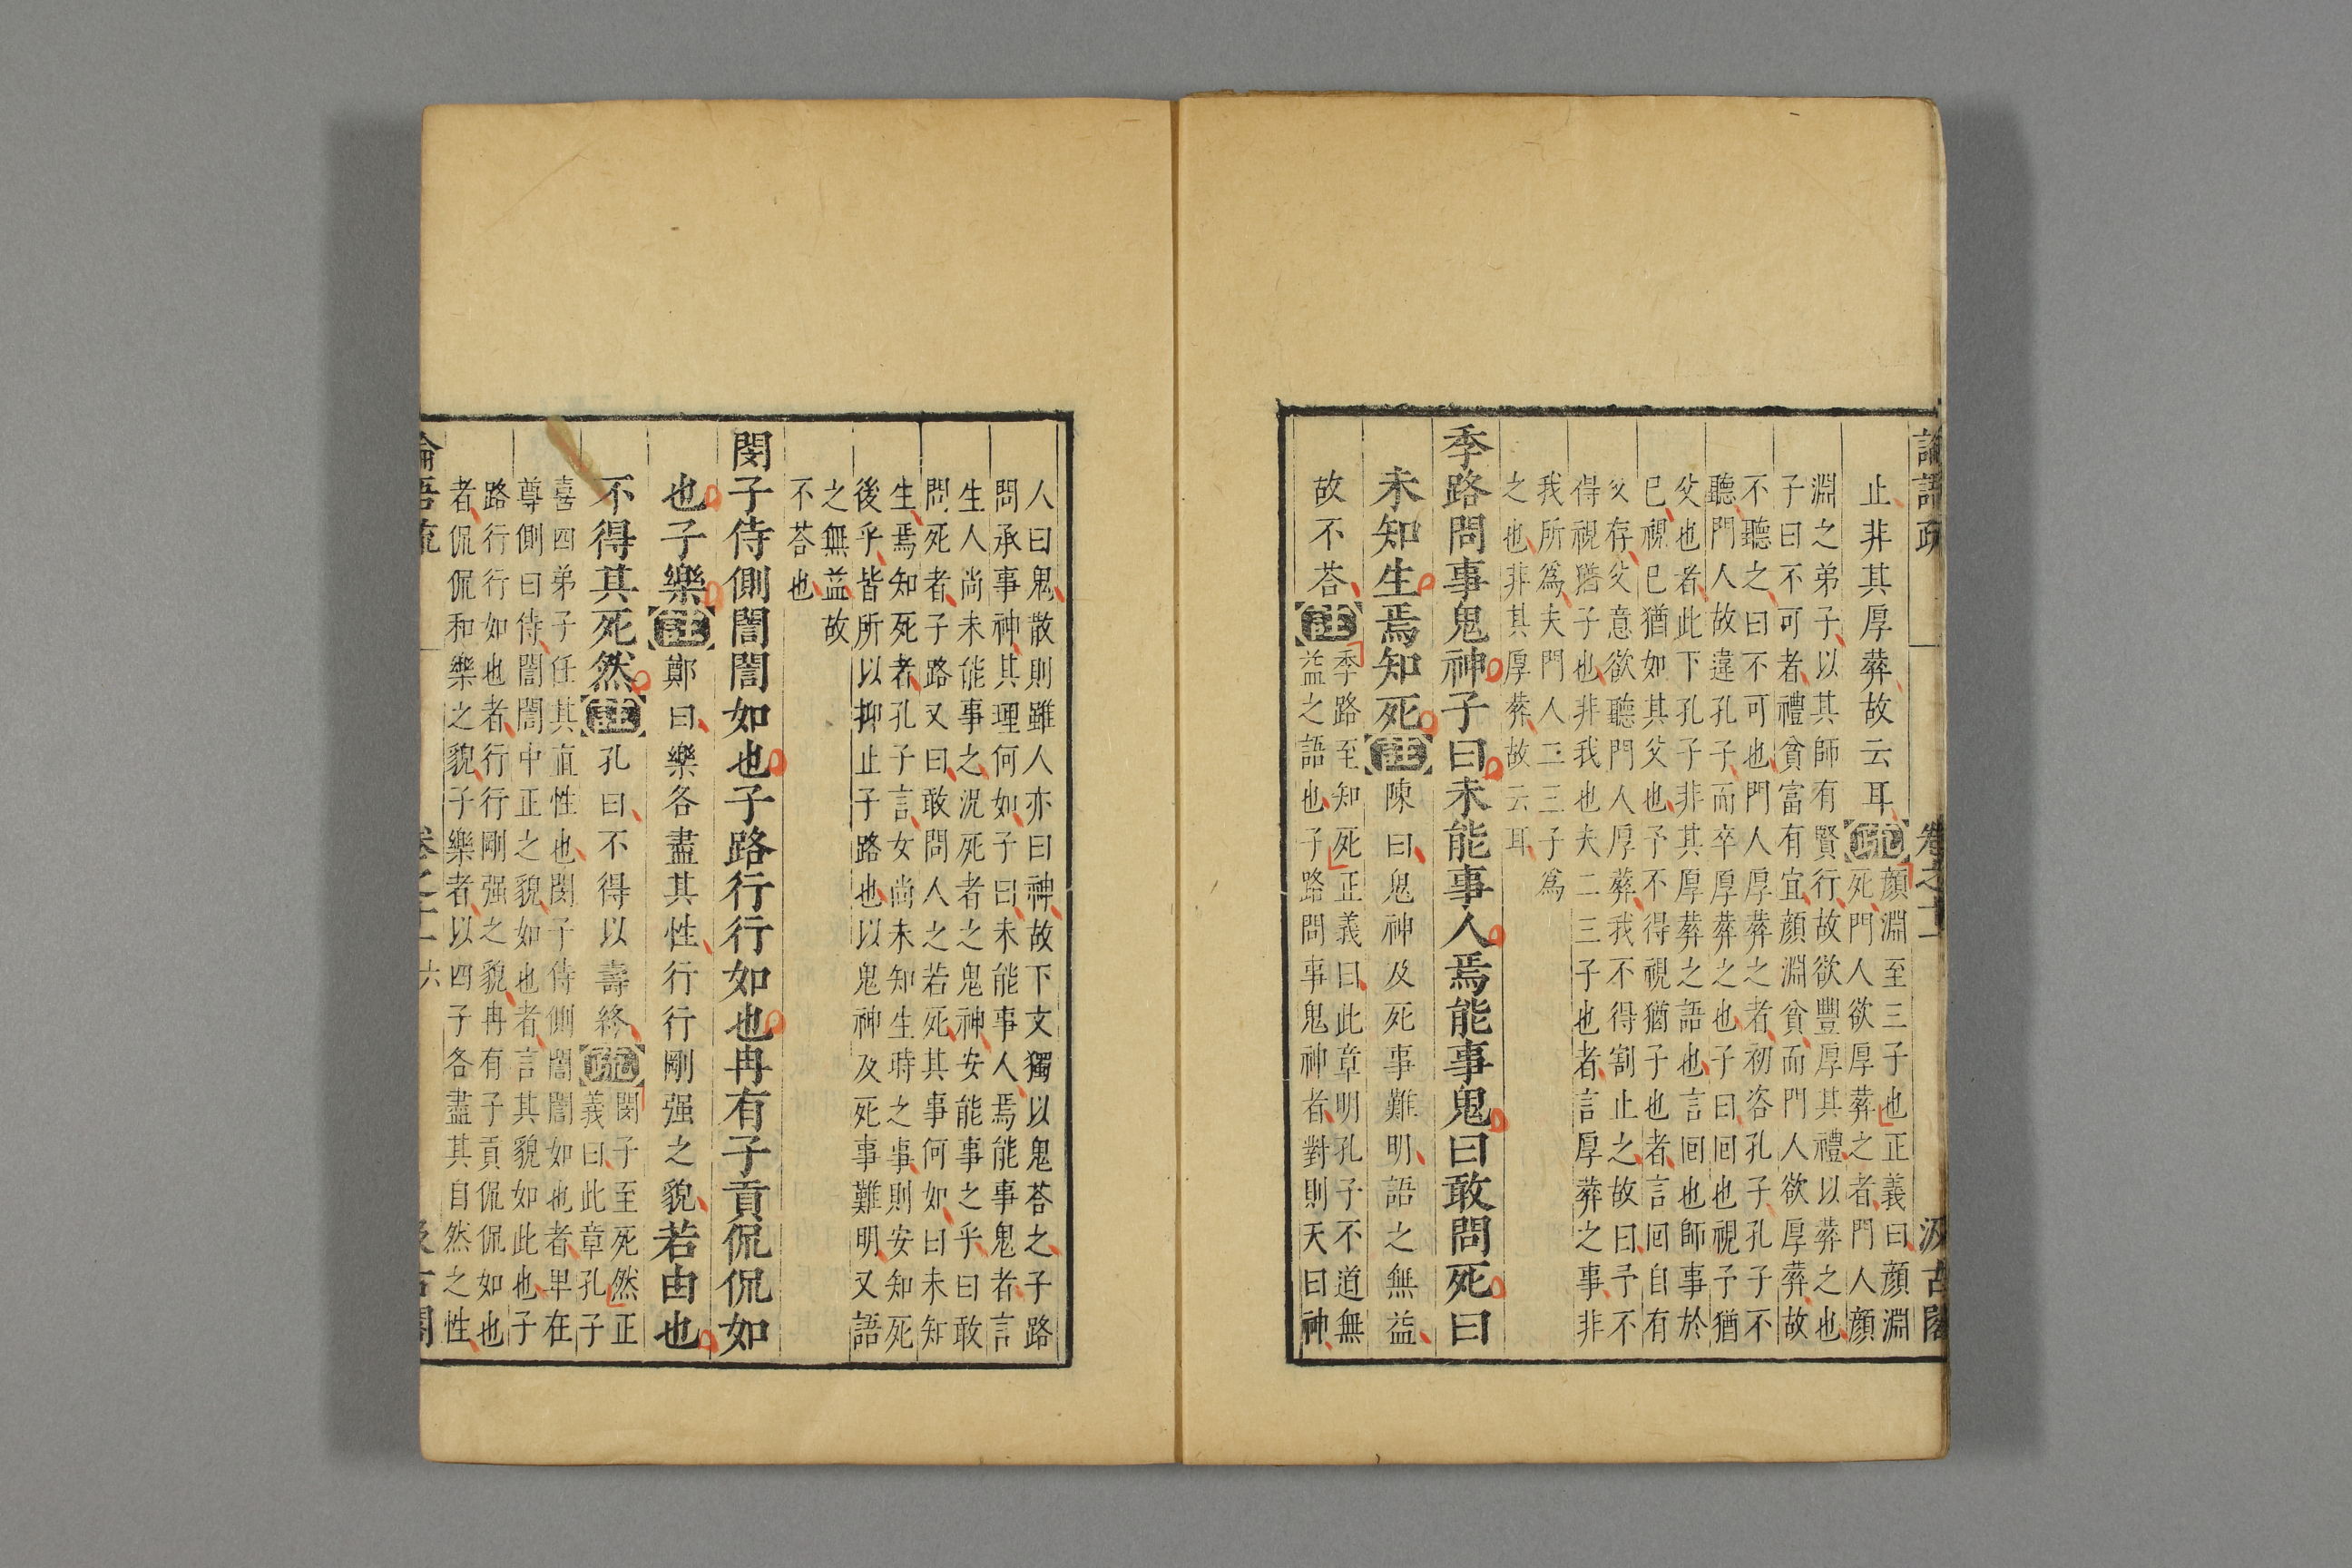 論語疏 卷之十一 汲古閣
止非其厚葬故云耳疏顏淵至三子也正義曰顏淵
死門人欲厚葬之者門人顏
淵之弟子以其師有賢行故欲豐厚其禮以葬之也
子曰不可者禮貧富有宜顏淵貧而門人欲厚葬故
不聽之曰不可也門人厚葬之者初咨孔子孔子不
聽門人故違孔子而卒厚葬之也子曰回也視予猶
父也者此下孔子非其厚葬之語也言回也師事於
已視已猶如其父也予不得視猶子也者言回自有
父存父意欲聽門人厚葬我不得割止之故曰予不
得視猶子也非我也夫二三子也者言厚葬之事非
我所爲夫門人二三子爲
之也非其厚葬故云耳
季路問事鬼神子曰未能事人焉能事鬼曰敢問死曰
未知生焉知死註陳曰鬼神及死事難明語之無益
故不荅註季路至知死正義曰此章明孔子不道無
益之語也子路問事鬼神者對則天曰神
人曰鬼散則雖人亦曰神故下文獨以鬼荅之子路
問承事神其理何如子曰未能事人焉能事鬼者言
生人尚未能事之況死者之鬼神安能事之乎曰敢
問死者子路又曰敢問人之若死其事何如曰未知
生焉知死者孔子言女尚未知生時之事則安知死
後乎皆所以抑止子路也以鬼神及死事難明又語
之無益故
不荅也
閔子侍側誾誾如也子路行行如也冉有子貢侃侃如
也子樂註鄭曰樂各盡其性行行剛强之貌若由也
不得其死然註孔曰不得以壽終疏閔子至死然正
義曰此章孔子
喜四弟子任其直性也閔子侍側誾誾如也者卑在
尊側曰侍誾誾中正之貌如也者言其貌如此也子
路行行如也者行行剛强之貌冉有子貢侃侃如也
者侃侃和樂之貌子樂者以四子各盡其自然之性
論語疏 卷之十一 六 汲古閣